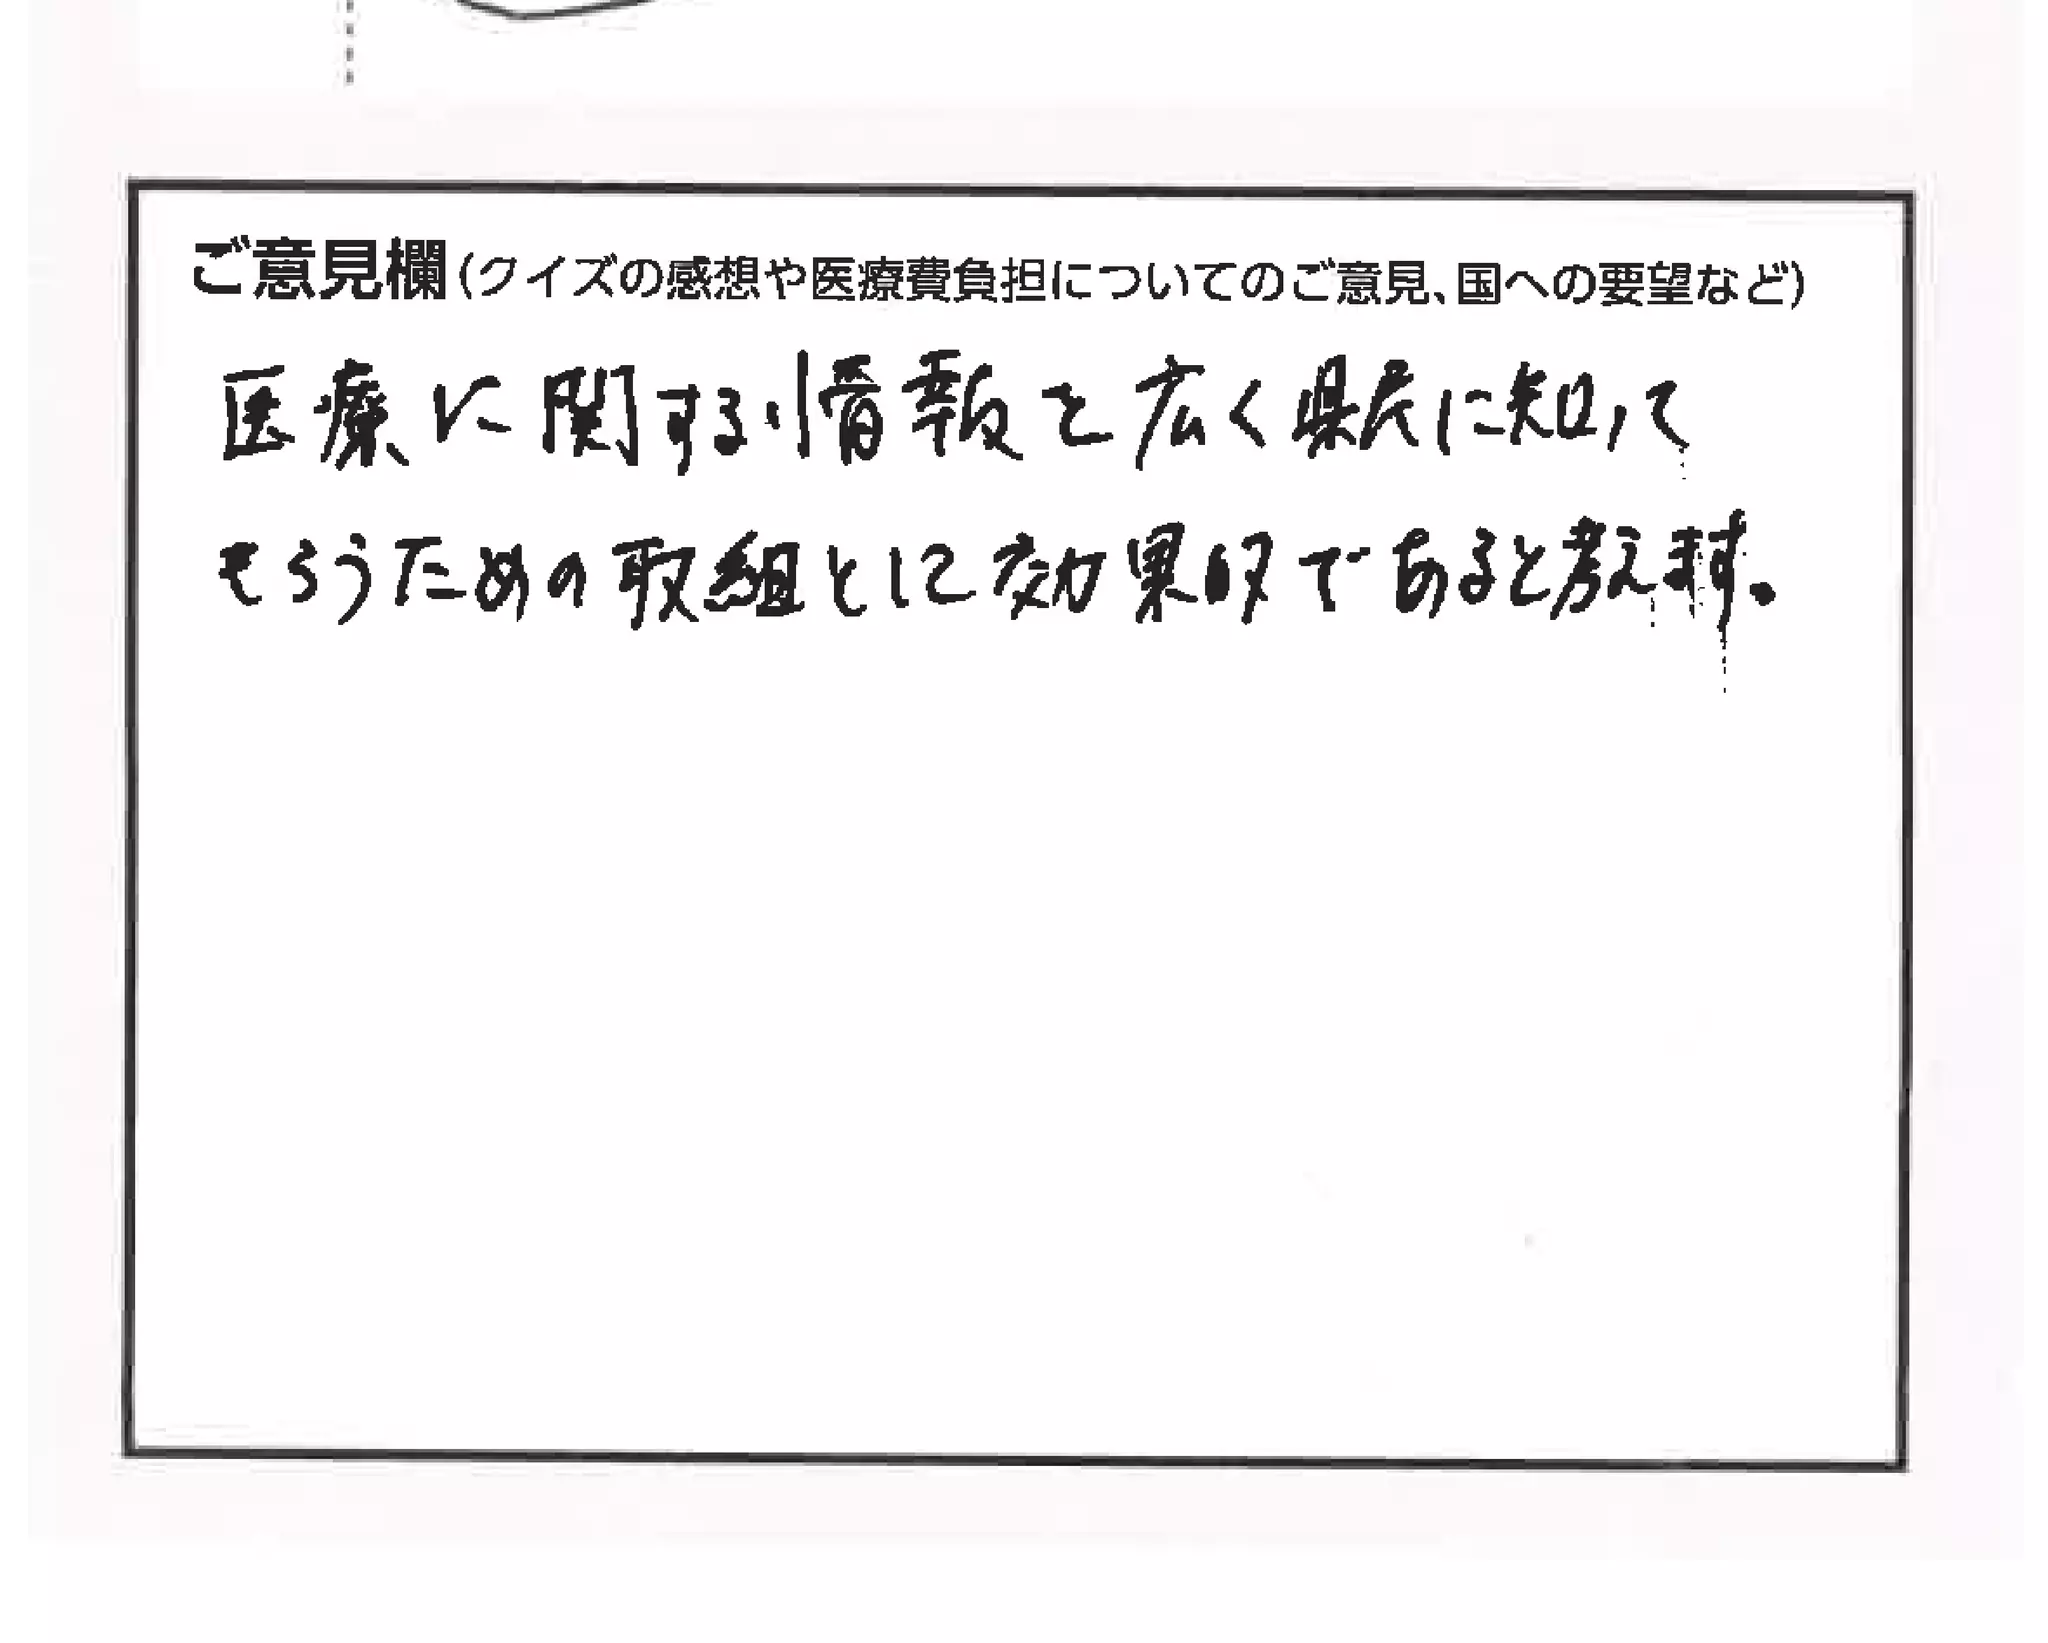 ご意見欄(クイズの感想や医療費負担についてのご意見、国への要望など)
医療に関する情報を広く県民に知って
もらうための取組として効果的であると考えます。